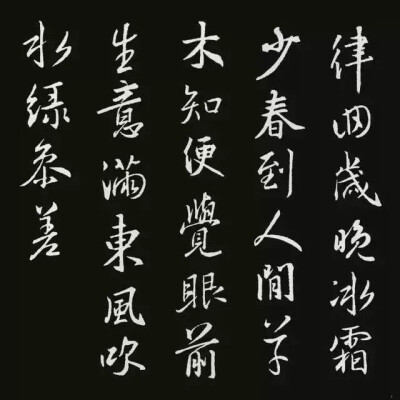 律回歲晚冰霜
少春到人間草
木知便覺眼前
生意滿東風吹
水綠參差